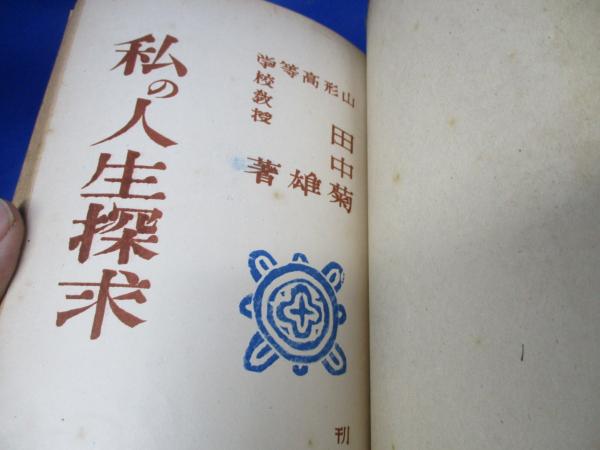 山形高等
学校教授
田中菊雄著
私の人生探求
刊